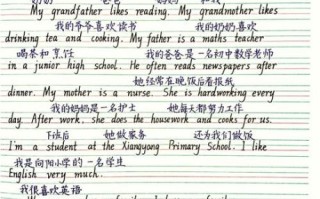 奶奶 爸爸 妈妈 和我
My grandfather likes reading. My grandmother likes
我的爷爷喜欢读书 我的奶奶喜欢
drinking tea and cooking. My father is a maths teacher
喝茶和烹饪 我的爸爸是一名初中数学老师
in a junior high school. He often reads newspapers after
她经常在晚饭后看报纸
dinner. My mother is a nurse. She is hardworking every
我的妈妈是一名护士 她每天都努力工作
day. After work, she does the housework and cooks for us.
下班后 她做家务 还为我们做饭
I'm a student at the Xiangyang Primary School. I like
我是向阳小学的一名学生
English very much.
我很喜欢英语